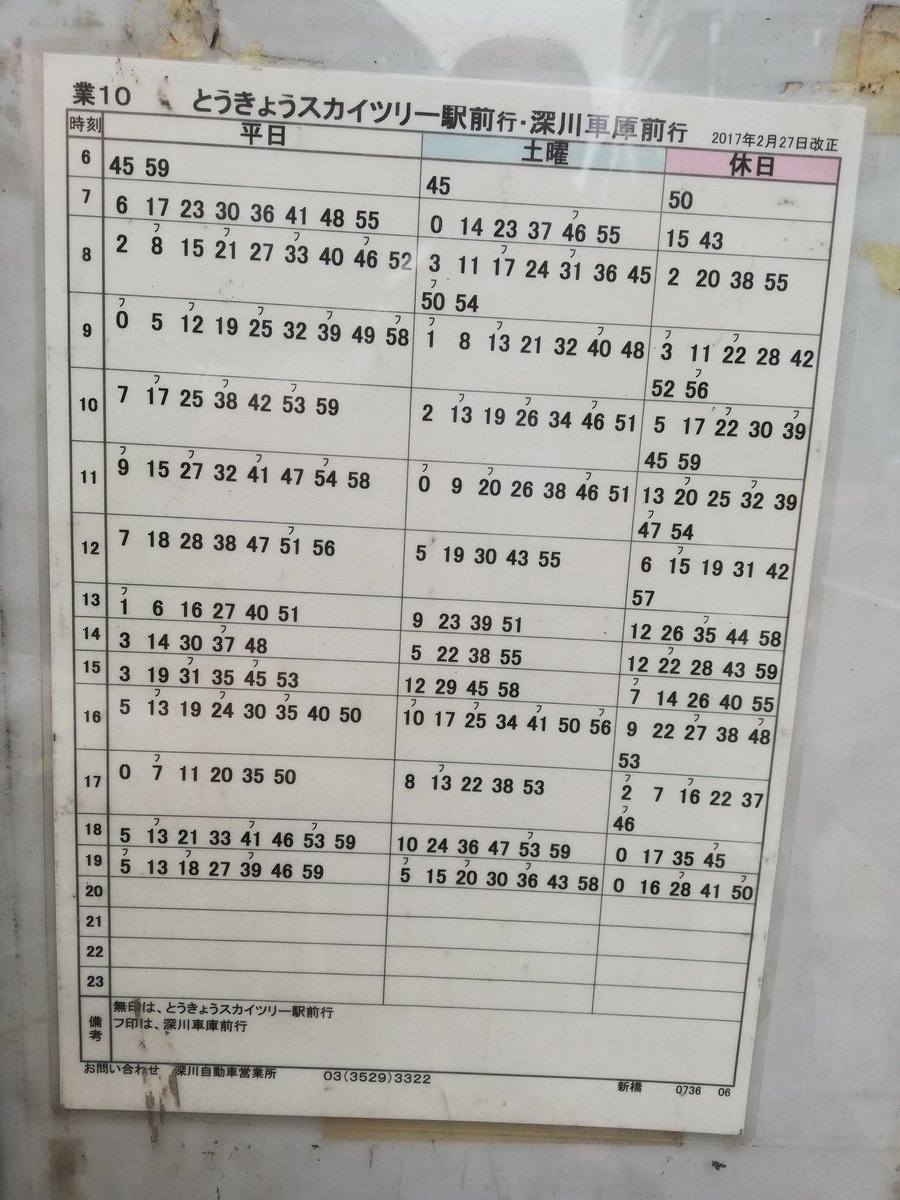 業10 とうきょうスカイツリー駅前行・深川車庫前行 2017年2月27日改正
時刻 平日 土曜 休日
6 45 59 45 50
7 6 17 23 30 36 41 48 55 0 14 23 37 フ46 55 15 43
8 2 フ8 15 フ21 27 フ33 40 フ46 52 3 11 フ17 24 フ31 36 45 2 20 38 55
フ50 54
9 フ0 5 フ12 19 フ25 32 フ39 49 フ58 フ1 8 フ13 21 32 フ40 48 フ3 11 フ22 28 42
52 フ56
10 7 フ17 25 フ38 42 フ53 59 2 フ13 19 フ26 34 フ46 51 5 17 フ22 30 フ39
45 59
11 フ9 15 フ27 32 フ41 47 フ54 58 フ0 9 フ20 26 38 フ46 51 13 フ20 25 フ32 39
フ47 54
12 7 18 28 38 47 フ51 56 5 19 30 43 55 6 フ15 19 31 42
57
13 フ1 6 16 27 40 51 9 23 39 51 12 26 フ35 44 58
14 3 14 30 フ37 48 5 22 38 55 12 フ22 28 43 59
15 3 19 フ31 35 フ45 53 12 29 45 58 フ7 14 26 40 55
16 5 フ13 19 フ24 30 フ35 40 50 フ10 17 フ25 34 フ41 50 フ56 9 22 フ27 38 フ48
53
17 0 フ7 11 20 35 50 8 フ13 22 38 53 フ2 7 フ16 22 37
フ46
18 5 フ13 21 33 フ41 46 フ53 59 10 24 36 47 フ53 59 0 17 35 フ45
19 フ5 13 フ18 27 フ39 46 59 フ5 15 フ20 30 フ36 43 58 0 16 フ28 41 フ50
20
21
22
23
備考
無印は、とうきょうスカイツリー駅前行
フ印は、深川車庫前行
お問い合わせ 深川自動車営業所 03(3529)3322 新橋 0736 06